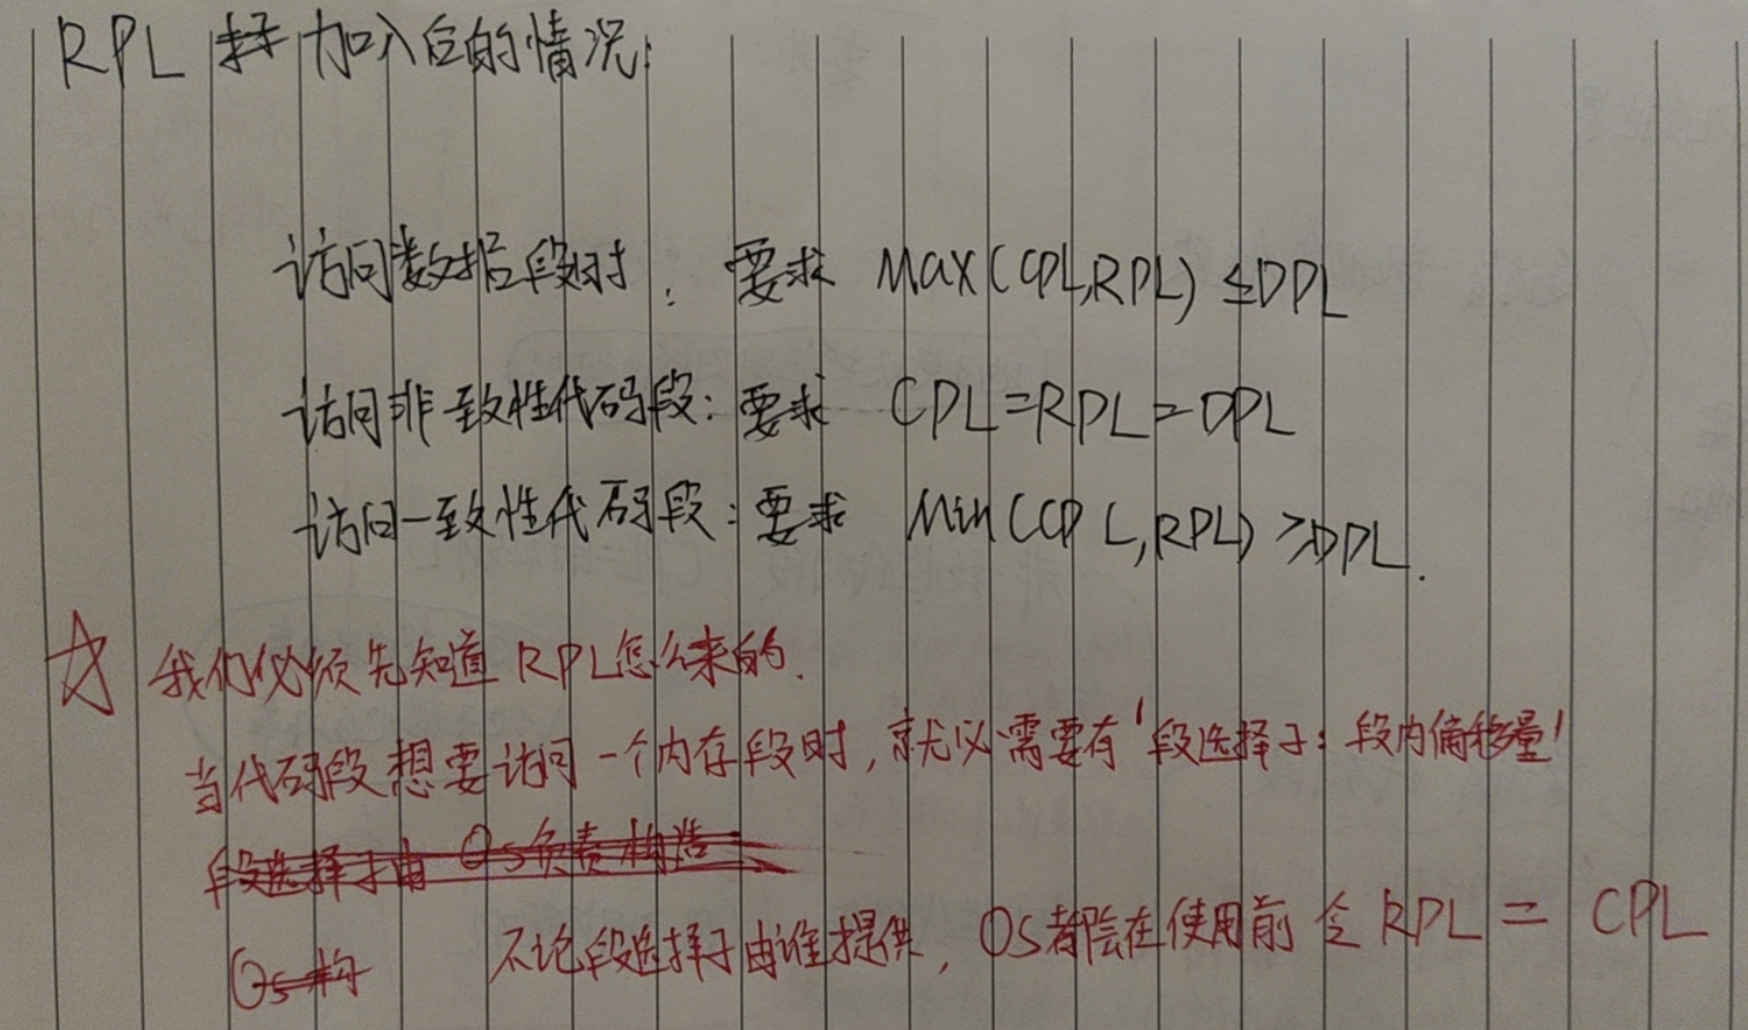 RPL 加入后的情况:
访问数据段时: 要求 Max(CPL,RPL) ≤DPL
访问非一致性代码段: 要求 CPL=RPL=DPL
访问一致性代码段: 要求 Min(CPL,RPL) ≥DPL.
☆ 我们必须先知道RPL怎么来的.
当代码段想要访问一个内存段时,就必需要有'段选择子: 段内偏移量'
段选择子由 Os负责构造
Os构 不论段选择子由谁提供, Os都会在使用前 令 RPL = CPL